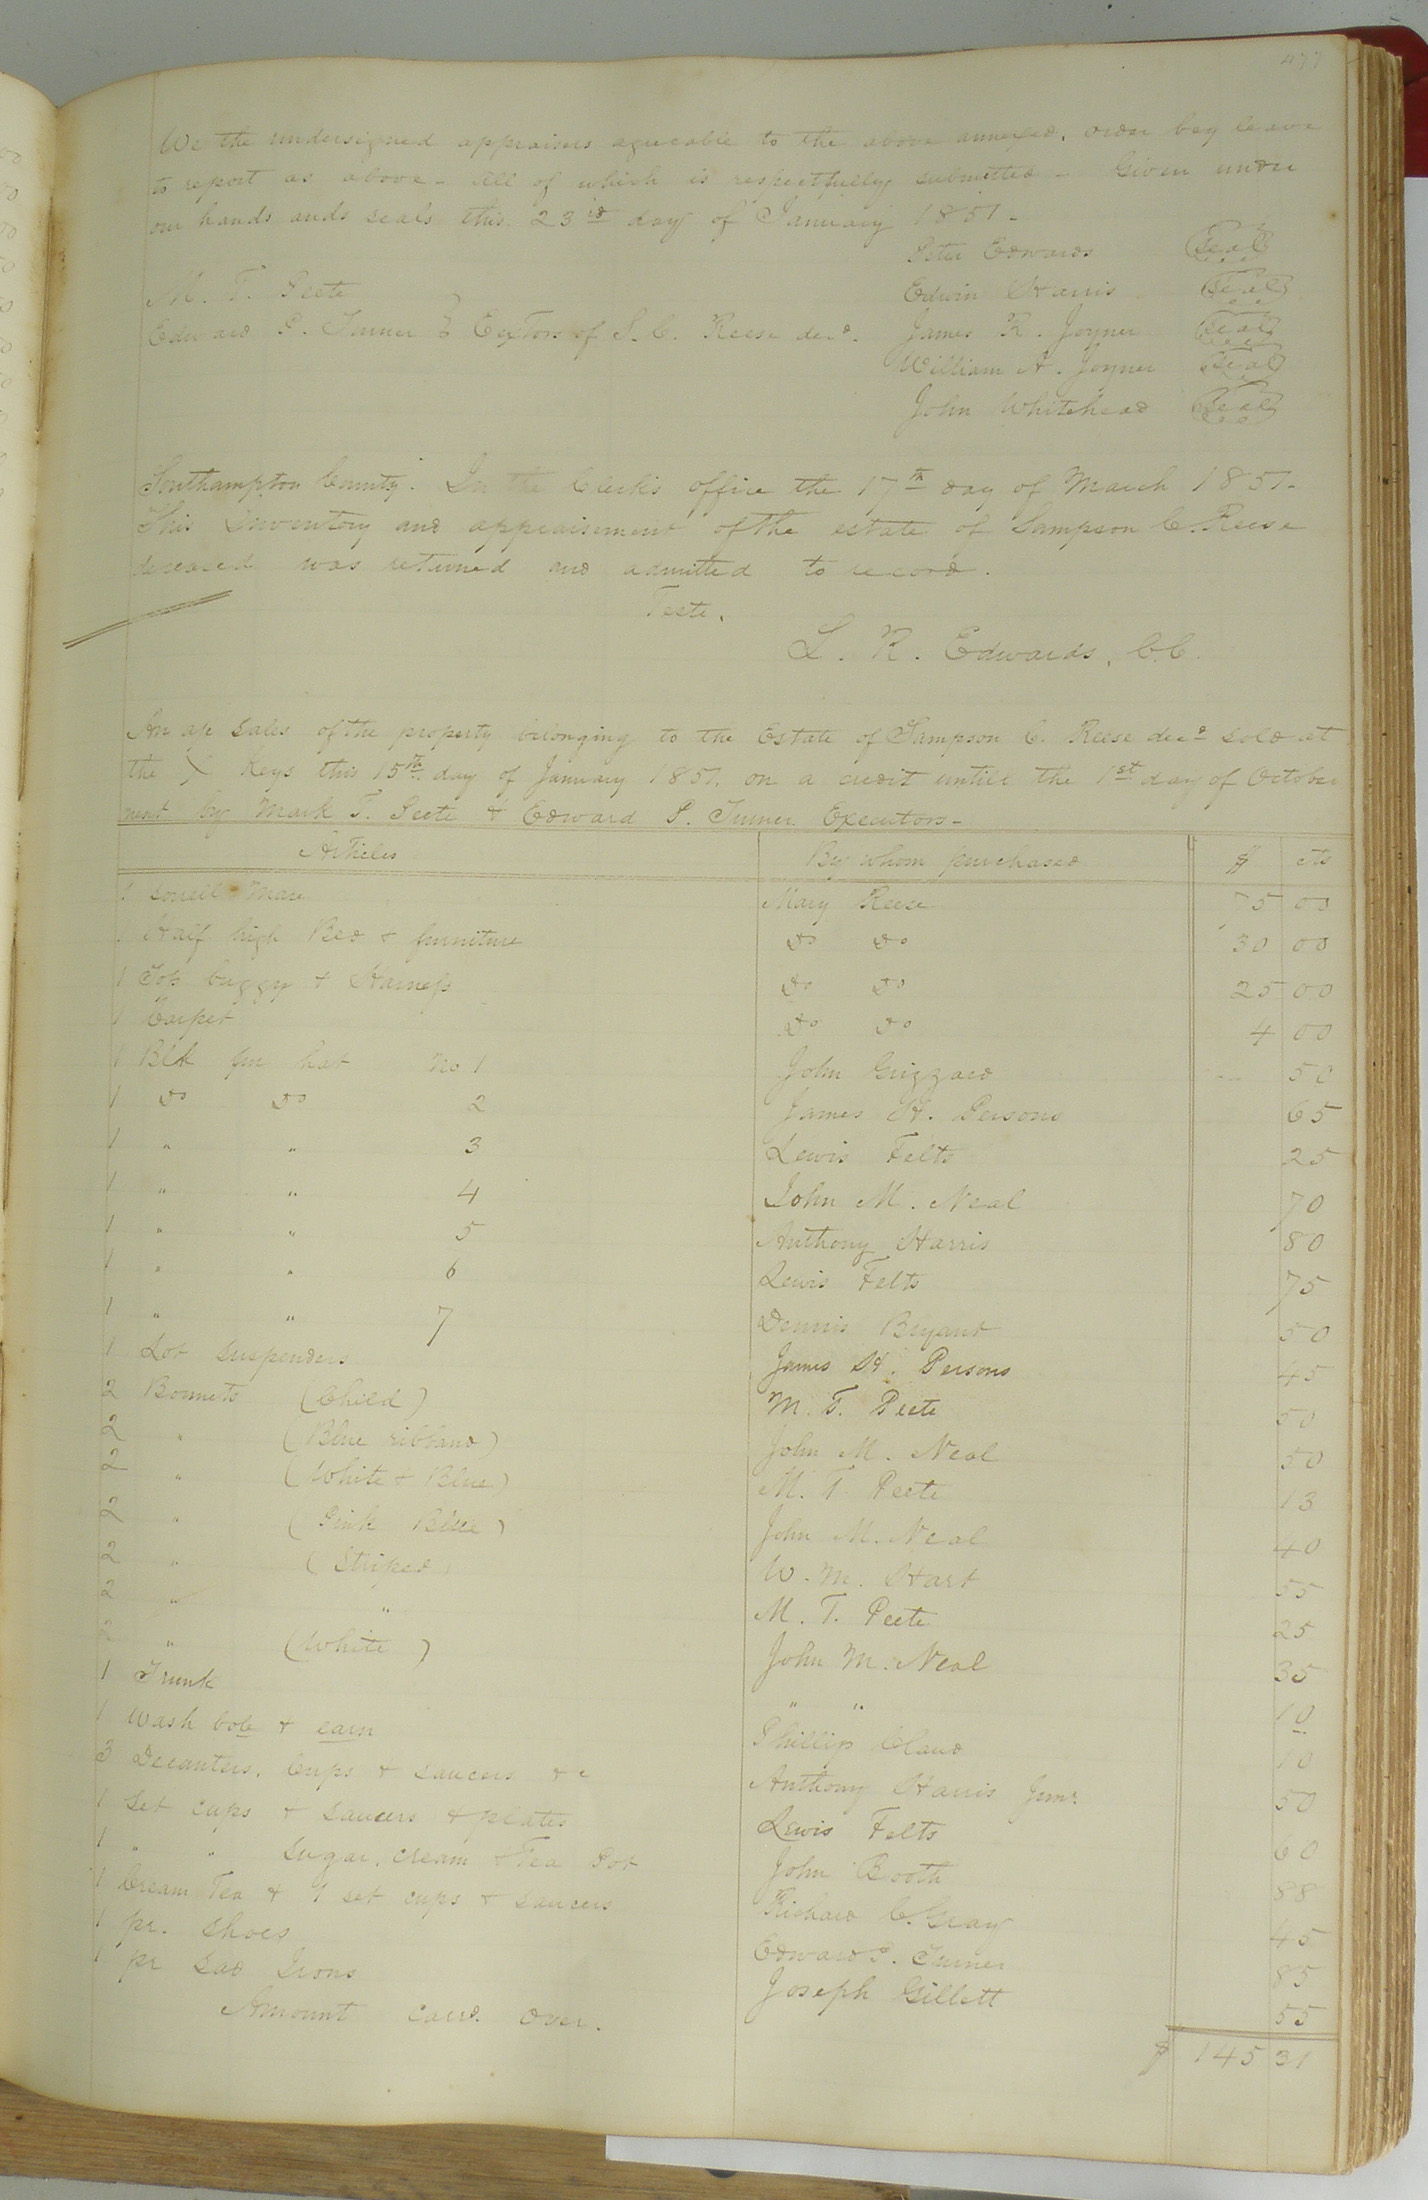 477
We the undersigned appraisers agreeable to the above annexed, order beg leave
to report as above - All of which is respectfully submitted - Given under
our hands and seals this 23rd day of January 1851 -
Peter Edwards Seal
M. T. Peete Edwin Harris Seal
Edward P. Turner } Extors of S. C. Reese decd. James R. Joyner Seal
William A. Joyner Seal
John Whitehead Seal
Southampton County. In the Clerk's office the 17th day of March 1851 -
This Inventory and appraisement of the estate of Sampson C. Reese
deceased was returned and admitted to record.
Teste,
L. R. Edwards, C.C.
An a/c sales of the property belonging to the Estate of Sampson C. Reese decd sold at
the X Keys this 15th day of January 1851, on a credit untill the 1st day of October
next by Mark T. Peete & Edward P. Turner Executors -
Articles By whom purchased $ cts
1 sorrell Mare Mary Reese 75 00
1 Half high Bed & furniture do do 30 00
1 Top buggy & Harness do do 25 00
1 Carpet do do 4 00
1 Blk fur hat No 1 John Grizzard 50
1 do do 2 James H. Persons 65
1 " " 3 Lewis Felts 25
1 " " 4 John M. Neal 70
1 " " 5 Anthony Harris 80
1 " " 6 Lewis Felts 75
1 " " 7 Dennis Bryant 50
1 Lot suspenders James H. Persons 45
2 Bonnets (Child) M. T. Peete 50
2 " (Blue ribband) John M. Neal 50
2 " (White & Blue) M. T. Peete 13
2 " (Pink Blue) John M. Neal 40
2 " (Striped) W. M. Hart 55
2 " " M. T. Peete 25
2 " (White) John M. Neal 35
1 Trunk " " 10
1 Wash bole & earn Phillip Claud 10
3 Decanters, Cups & saucers &c Anthony Harris Junr. 50
1 set cups & saucers & plates Lewis Felts 60
1 " " Sugar, cream & Tea Pot John Booth 88
1 Cream Tea & 1 set cups & saucers Richard C. Gray 45
1 pr. shoes Edward P. Turner 85
1 pr sad Irons Joseph Gillett 55
Amount card. over. $ 145 31